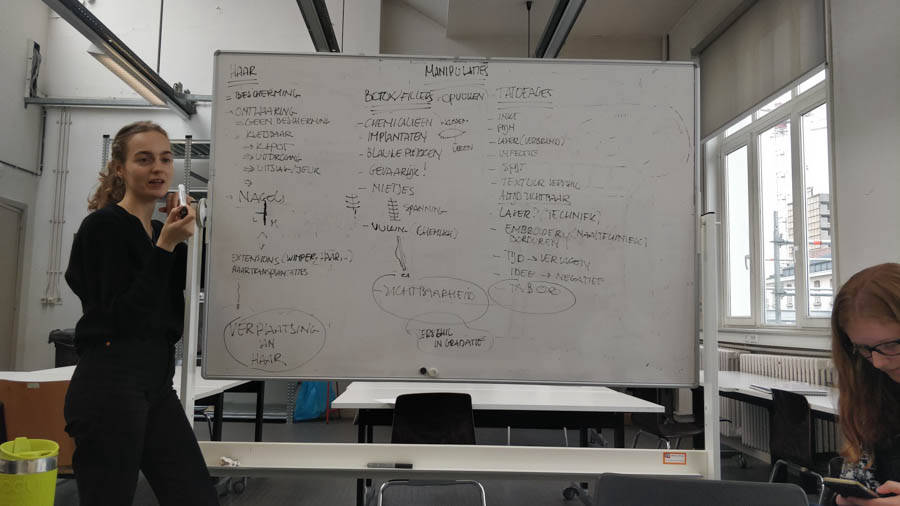 HAAR
= BESCHERMING
- ONTHARING
= GEEN BESCHERMING
KLEDBAAR
→ KAPOT
→ UITDROGING
→ UITSLAG/JEUK
NAGELS
EXTENSIONS (WIMPER, HAAR,...)
HAARTRANSPLANTATIES
VERPLAATSING
VAN
HAAR
MANIPULATIES
BOTOX/FILLERS
OPVULLEN
- CHEMICALIEEN
IMPLANTATEN
- BLAUWE PLEKKEN
- GEVAARLIJK!
- NIETJES
SPANNING
- VULLING (CHEMISCH)
ZICHTBAARHEID
VERSCHIL
IN GRADATIE
TATOEAGES
- INKT
- PIJN
- LASER (VERBRAND)
- INFECTIE
- SPIJT
- TEXTUUR VERSCHIL
- ALTIJD ZICHTBAAR
- LASER? (TECHNIEK)
- EMBROIDERY (NAALDTECHNIEK)
BORDUREN
- TIJD →
- IDEE → NEGATIEF
TABOE